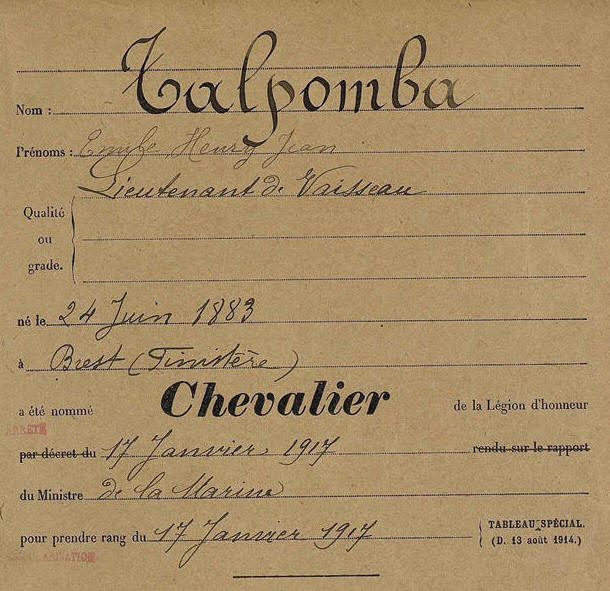 Nom : Talpomba
Prénoms : Emile Henry Jean
Lieutenant de Vaisseau
Qualité
ou
grade.
né le 24 Juin 1883
à Brest (Finistère)
a été nommé Chevalier de la Légion d'honneur
ARRETÉ
par décret du 17 Janvier 1917 rendu sur le rapport
du Ministre de la Marine
pour prendre rang du 17 Janvier 1917
TABLEAU SPÉCIAL.
(D. 13 août 1914.)